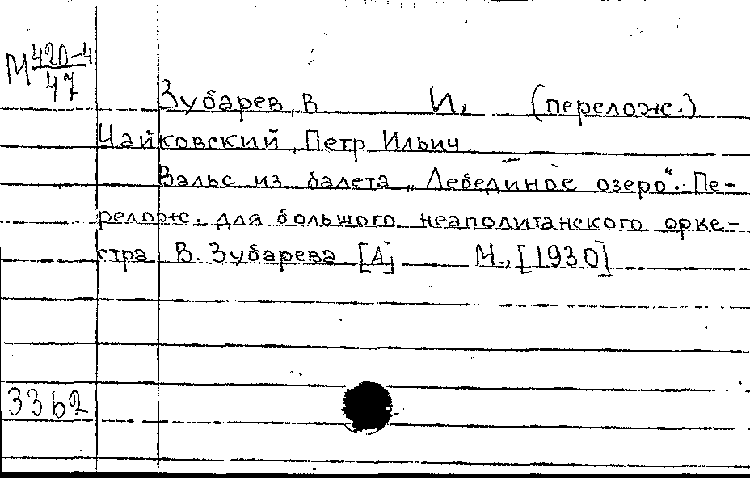 М 420-4
47
Зубарев, В И. (перелож.)
Чайковский, Петр Ильич
Вальс из балета „Лебединое озеро“. Пе-
релож. для большого неаполитанского орке-
стра В. Зубарева [А] М., [1930]
33b2